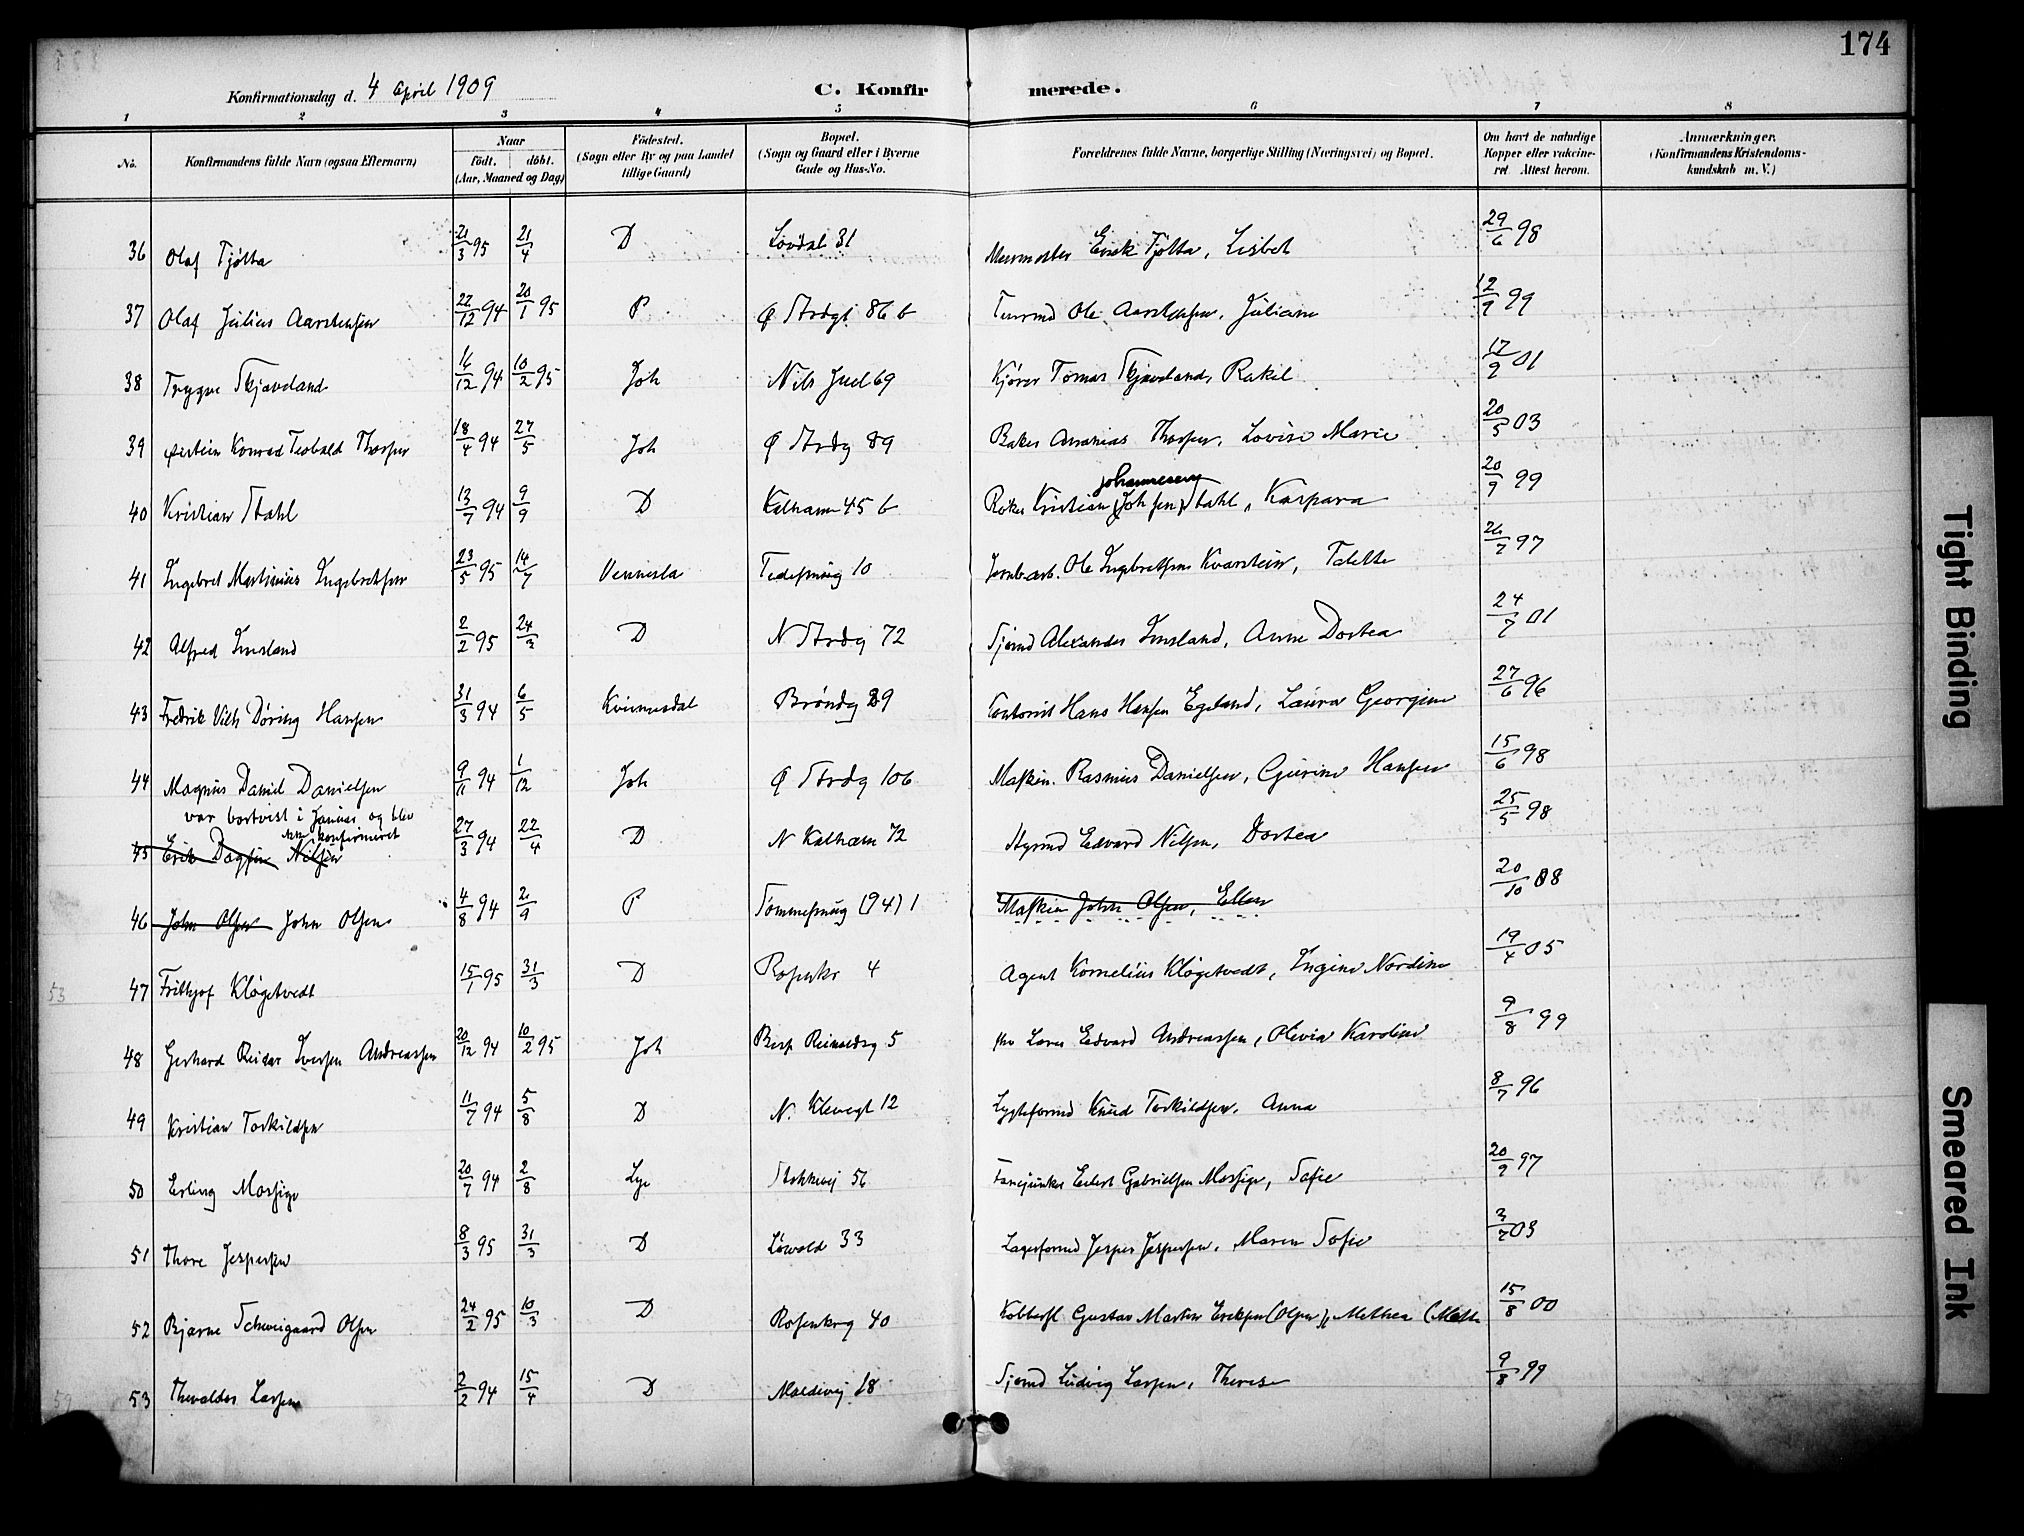 174
Konfirmationsdag d. 4 April 1909
C. Konfirmerede.
1 2 3 4 5 6 7 8
No. Konfirmandens fulde Navn (ogsaa Efternavn) Naar födt. döbt. (Aar, Maaned og Dag) Födested. (Sogn eller By og paa Landet tillige Gaard) Bopæl. (Sogn og Gaard eller i Byerne Gade og Hus-No. Forældrenes fulde Navne, borgerlige Stilling (Næringsvei) og Bopæl. Om havt de naturlige Kopper eller vaccineret Attest herom. Anmærkninger. (Konfirmandens Kristendomskundskab m. V.)
36 Olaf Tjøtta 21/3 95 21/4 D Lovdal 31 Murmester Erik Tjøtta, Lisbet 29/6 98
37 Olaf Julius Aarstensen 22/12 94 20/1 95 P Ø Strdgt 86 b Ole Aarstensen, Juliane 12/9 99
38 Trygve Skjæveland 16/12 94 10/2 95 Joh Nils Juel 69 Kjører Tomas Skjæveland, Rakil 17/9 01
39 Øistein Konrad Teobald Thorsen 18/4 94 27/5 Joh Ø Strdg 89 Baker Ananias Thorsen, Lovise Marie 20/5 03
40 Kristian Stahl 13/7 94 9/9 D Kalhamm 45 b Kristian (Johsen) Johannesen Stahl, Kaspara 20/9 99
41 Ingebret Martinius Ingebretsen 23/5 95 14/7 Vennesla 10 Jernbarb. Ole Ingebretsen Kvarstein, Talette 26/7 97
42 Alfred Imsland 2/2 95 24/3 D N Strdg 72 Sjømd Alexander Imsland, Anne Dortea 24/7 01
43 Fredrik Vilh Døring Hansen 31/3 94 6/5 Kvinnesdal Brøndg 29 Kontorist Hans Hansen Egeland, Laura Georgine 27/6 96
44 Magnus Daniel Danielsen 9/11 94 1/12 Joh Ø Strdg 106 Maskin. Rasmus Danielsen, Gurine Hansen 15/6 98
var bortvist i Januar og blev
ikke konfirmeret
45 Erik Dagfin Nilsen 27/3 94 22/4 D N Kalham 72 Edvard Nilsen, Dortea 25/5 98
46 John Olsen John Olsen 4/8 94 2/9 P (94) 1 Maskin John Olsen, Ellen 20/10 08
47 Frithjof Kløgetvedt 15/1 95 31/3 D Rosenkr 4 Agent Kornelius Kløgetvedt, Ingine Nordine 19/4 05
53
48 Gerhard Reidar Iversen Andreassen 20/12 94 10/2 95 Joh Bisp Reinaldsg 5 Lars Edvard Andreassen, Olevia Karoline 9/8 99
49 Kristian Torkildsen 11/7 94 5/8 D N. Klevegt 12 Lygteformd Knud Torkildsen, Anna 8/7 96
50 Erling Mossige 20/7 94 2/8 Lye Stokkevej 56 Eilert Gabrielsen Mossige, Sofie 20/9 97
51 Thore Jespersen 8/3 95 31/3 D Løvdal 33 Lagerformd Jesper Jespersen, Maren Sofie 3/7 03
52 Bjarne Schweigaard Olsen 24/2 95 10/3 D Rosenkrg 40 Gustav Martin Eriksen (Olsen), Methea (Meth 15/8 00
53 Thevalder Larsen 2/2 94 15/4 D Maldevej 18 Sjømd Ludvig Larsen, Therese 9/8 99
59
Tight Binding
Smeared Ink